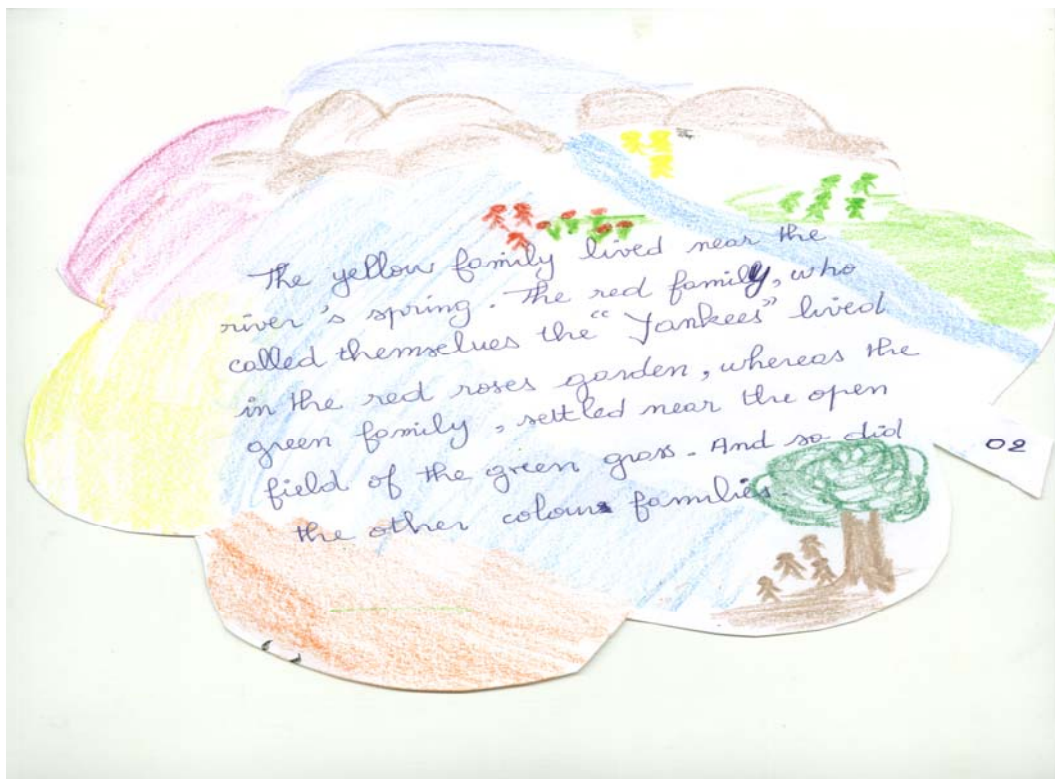 The yellow family lived near the
river's spring. The red family, who
called themselves the "Yankees" lived
in the red roses garden, whereas the
green family, settled near the open
field of the green grass. And so did
the other colours families.
02